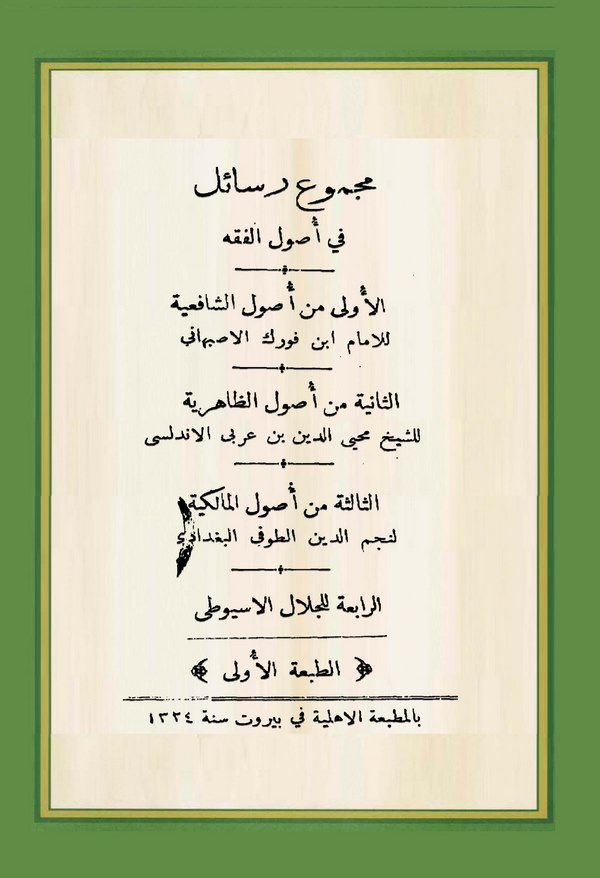 مجموع رسائل
في أصول الفقه
الأولى من أصول الشافعية
للامام ابن فورك الاصبهاني
الثانية من أصول الظاهرية
للشيخ محيي الدين بن عربى الاندلسى
الثالثة من أصول المالكية
لنجم الدين الطوفي البغدادي
الرابعة للجلال الاسيوطى
﴿ الطبعة الأولى ﴾
بالمطبعة الاهلية في بيروت سنة ١٣٢٤